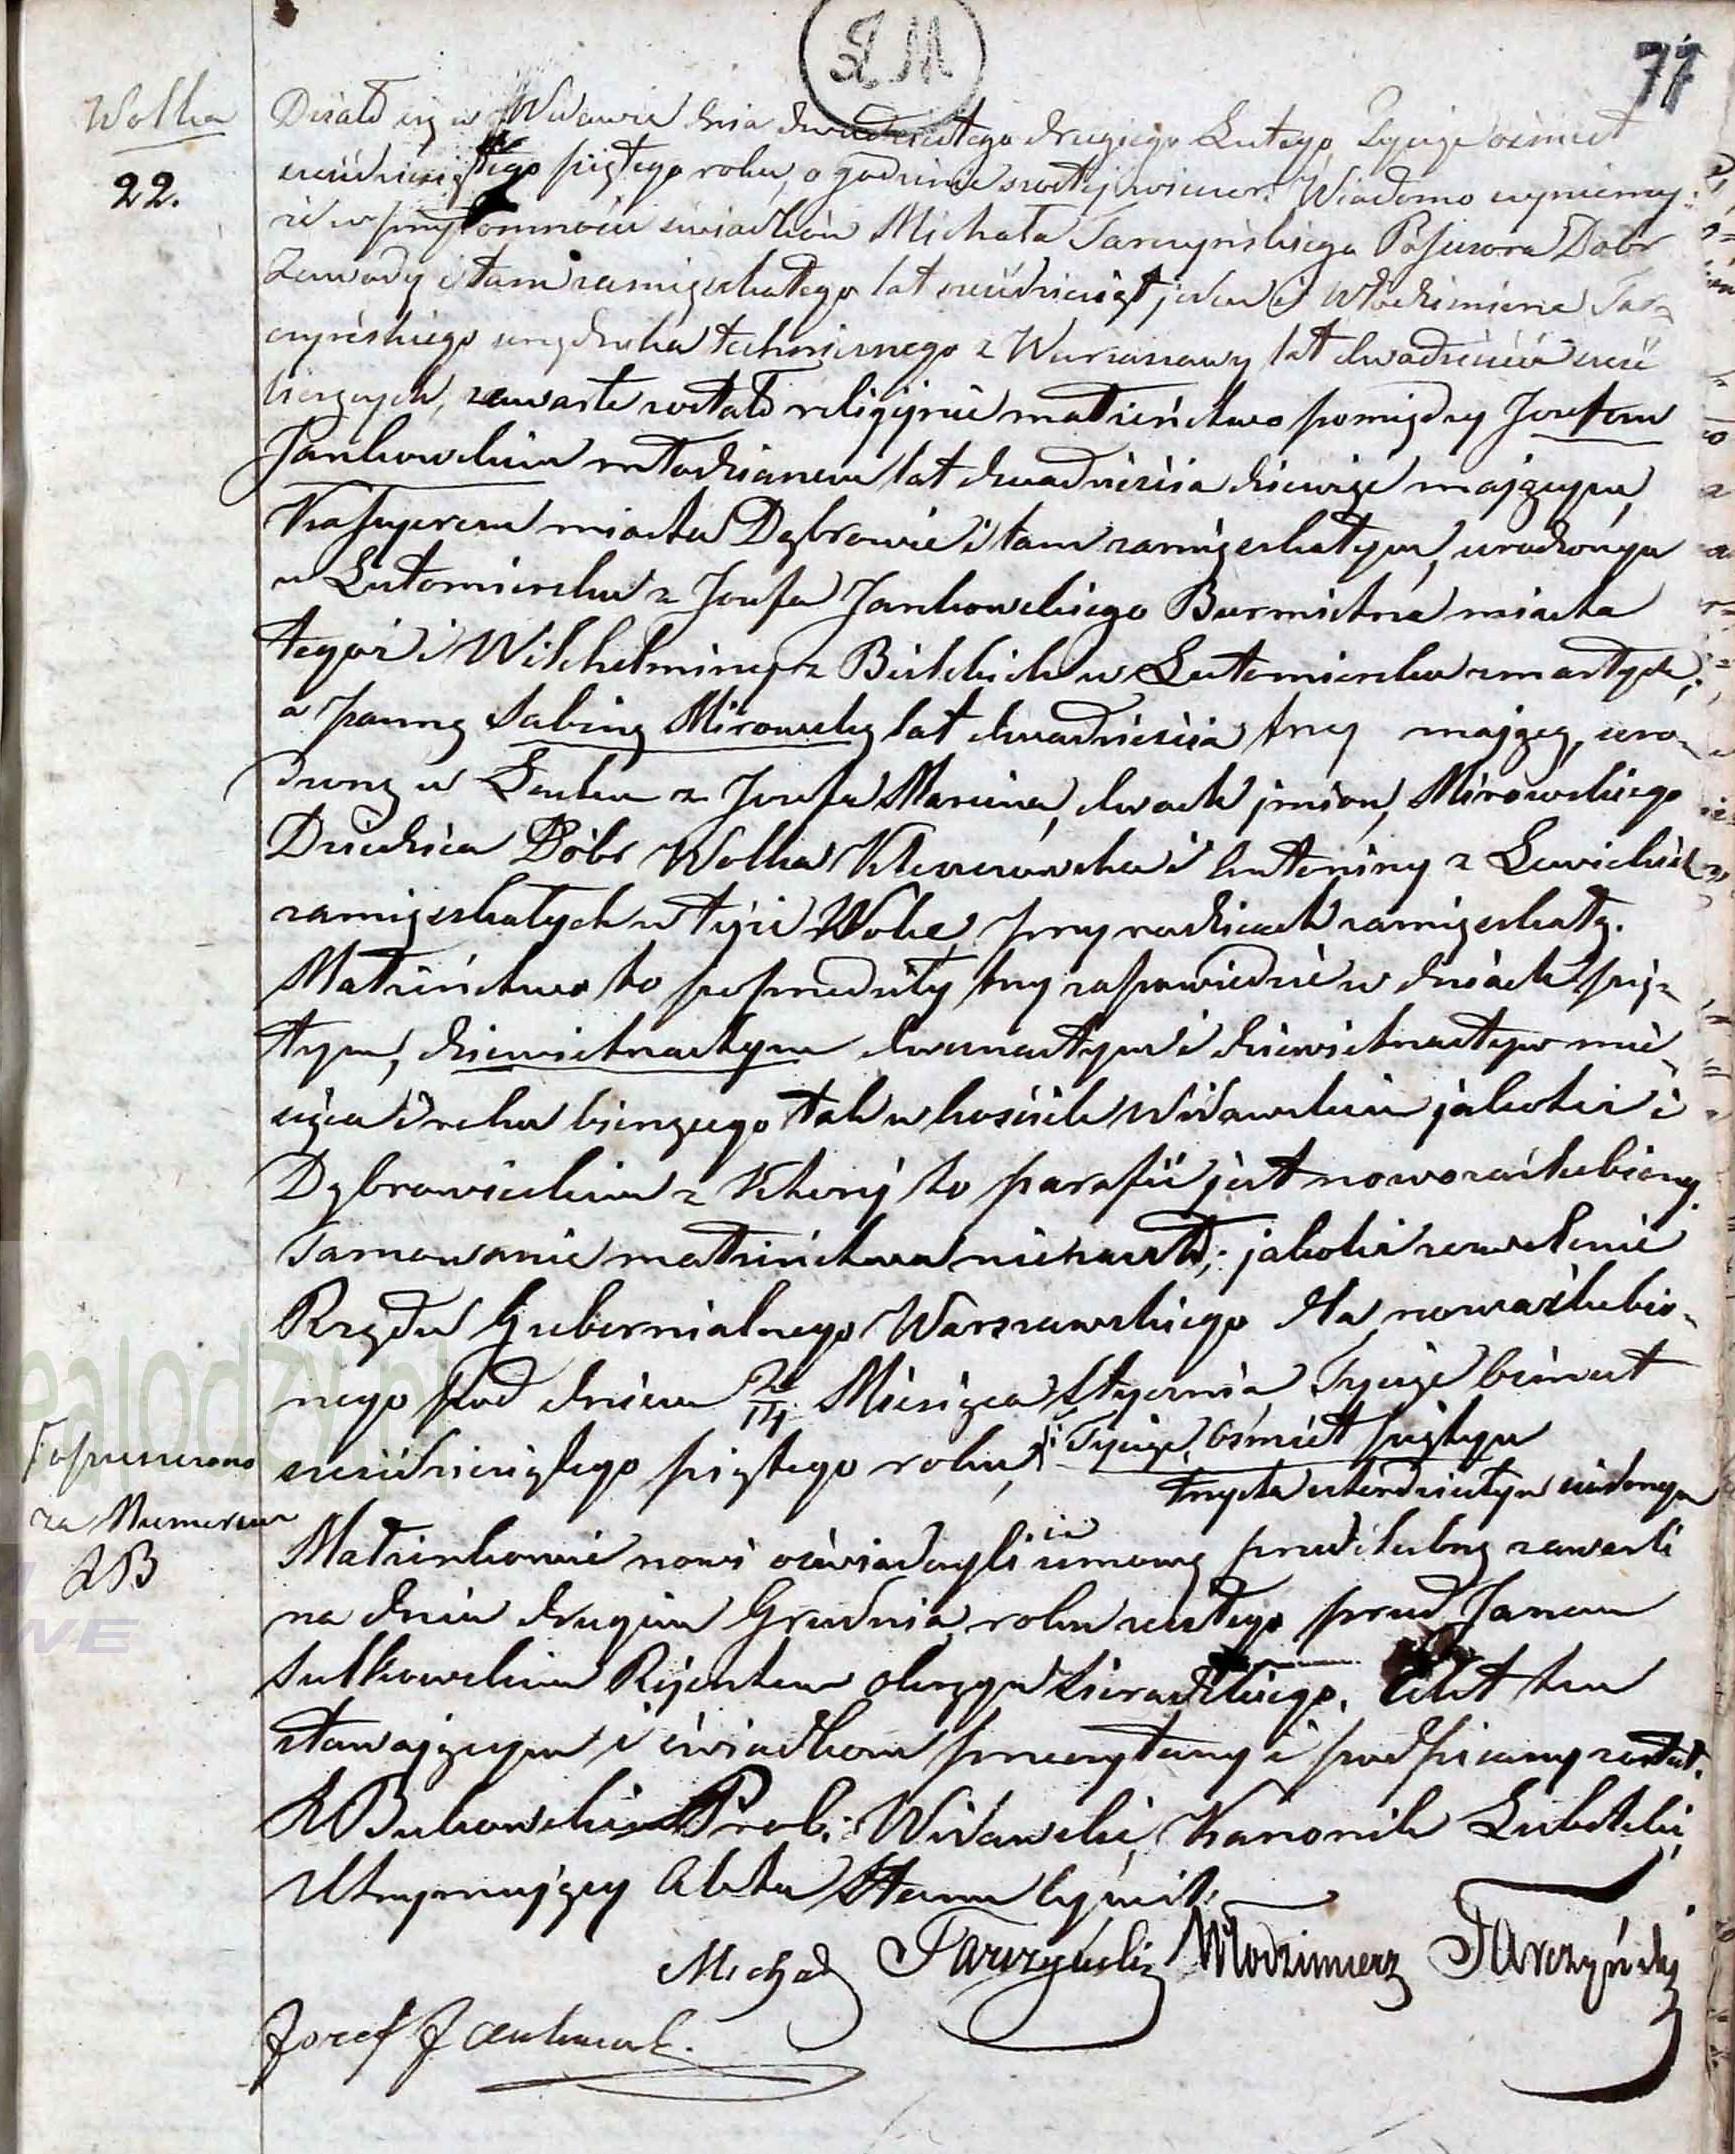 77
Wolka
22.
Działo się w Widawie dnia dwudziestego drugiego Lutego Tysiąc ośmset
sześćdziesiątego piątego roku, o godzinie szóstej wieczor. Wiadomo czyniemy
że w przytomności świadków Michała Tarczyńskiego Possesora Dobr
Zawady i tam zamięszkałego lat sześćdziesiąt jeden i Włodzimirza Tar-
czyńskiego urzędnika technicznego z Warszawy lat dwadzieścia sześć
liczących, zawarte zostało religijnie małżeństwo pomiędzy Józefem
Jankowskim młodzianem lat dwadzieścia dziewięć mającym,
Kassyerem miasta Dąbrowie i tam zamięszkałym, urodzonym
w Lutomiersku z Józefa Jankowskiego Burmistrza miasta
tegoż i Wilchelminy z Bielskich w Lutomiersku zmarłych;
a panną Sabiną Mirowską lat dwadzieścia trzy mającą, uro-
dzoną w Łasku z Józefa Marcina, dwóch imion, Mirowskiego
Dziedzica Dóbr Wolka Kleszczowska i Antoniny z Lewickich
zamięszkałych w tejże Wolce, przy rodzicach zamięszkałą.
Małżeństwo to poprzedziły trzy zapowiedzie w dniach pią-
tym, dziewietnastym dwunastym i dziewietnastym mie-
siąca i roku bieżącego tak w kościele Widawskim jakoteż i
Dąbrowickim z której to parafii jest nowozaślubiony.
Tamowanie małżeństwa nie zaszło; jakoteż zezwolenie
Rządu Gubernialnego Warszawskiego dla nowozaślubio-
nego pod dniem 2/14 Miesiąca Stycznia Tysiąc ósmset
sześćdziesiątego piątego roku, i Tysiąc ósmset piątym
trzysta czterdziestym siódmym
Dopuszczono
za Numerem
AB
Małżonkowie nowi oświadczyli iż umowę przedślubną zawarli
na dniu drugim Grudnia roku zeszłego przed Janem
Sulkowskim Rejentem okręgu Sieradzkiego. Akt ten
stawającym i świadkom przeczytany i podpisany został.
A Bukowski Prob: Widawski, Kanonik
Utrzymujący Akta Stanu Cywil:
Michał Tarczyński Włodzimierz Tarczyński
Jozef Jankowski.